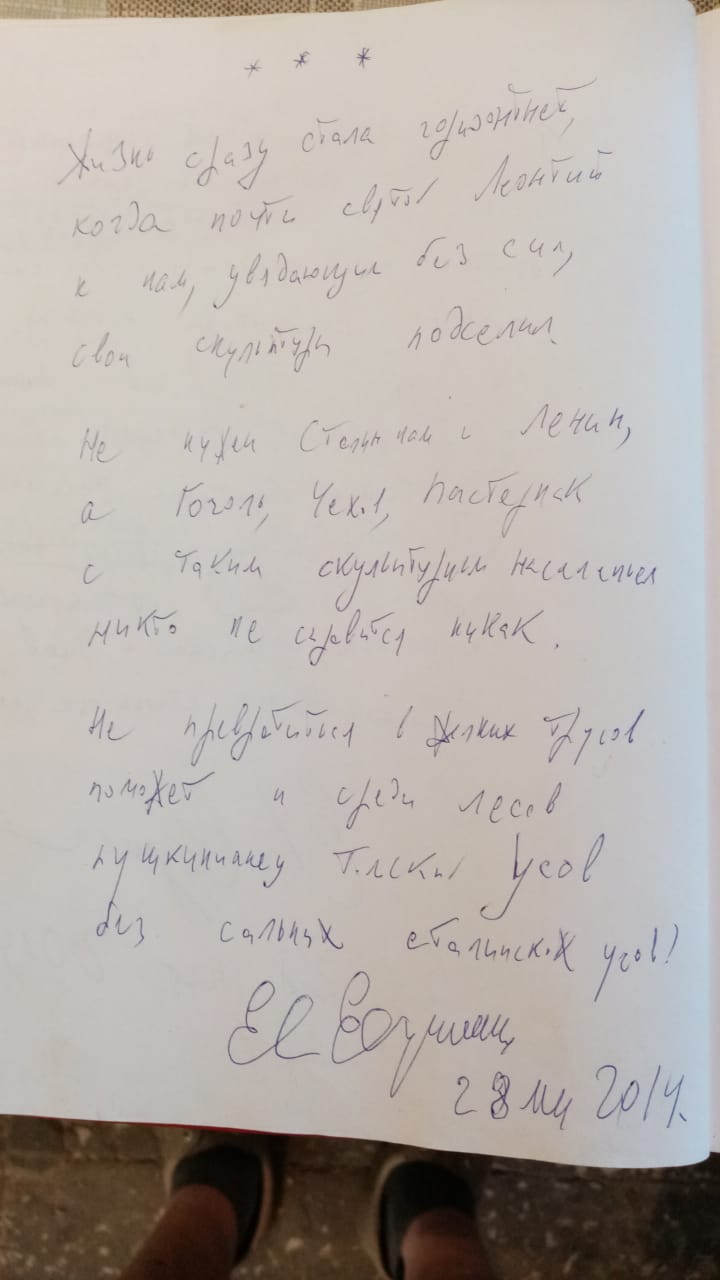 * * *
Жизнь сразу стала горизонтней,
когда почти святой Леонтий
к нам, увядающим без сил,
свои скульптуры подселил.
Не нужен Сталин нам и Ленин,
а Гоголь, Чехов, Пастернак
с таким скульптурным населеньем
никто не справится никак.
Не превратиться в мелких трусов
поможет и среди лесов
пушкинианец Усов
без сальных сталинских усов!
28 2014.